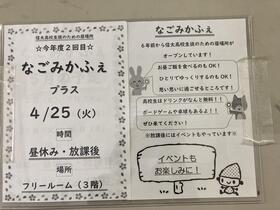 信太高校生徒のための居場所
☆今年度２回目☆
なごみかふぇ
プラス
4／25（火）
時間
昼休み・放課後
場所
フリールーム（３階）
なごみかふぇ
６年前から信太高校生徒のための居場所が
オープンしています！
お昼ご飯を食べるのもOK！
ひとりでゆっくりするのもOK！
思い思いに過ごせるところです！
高校生はドリンクがなんと無料！！
ボードゲームや卓球もあるよ！！
ぜひ来てください！
※放課後にはイベントもやっています※
イベントも
お楽しみに！